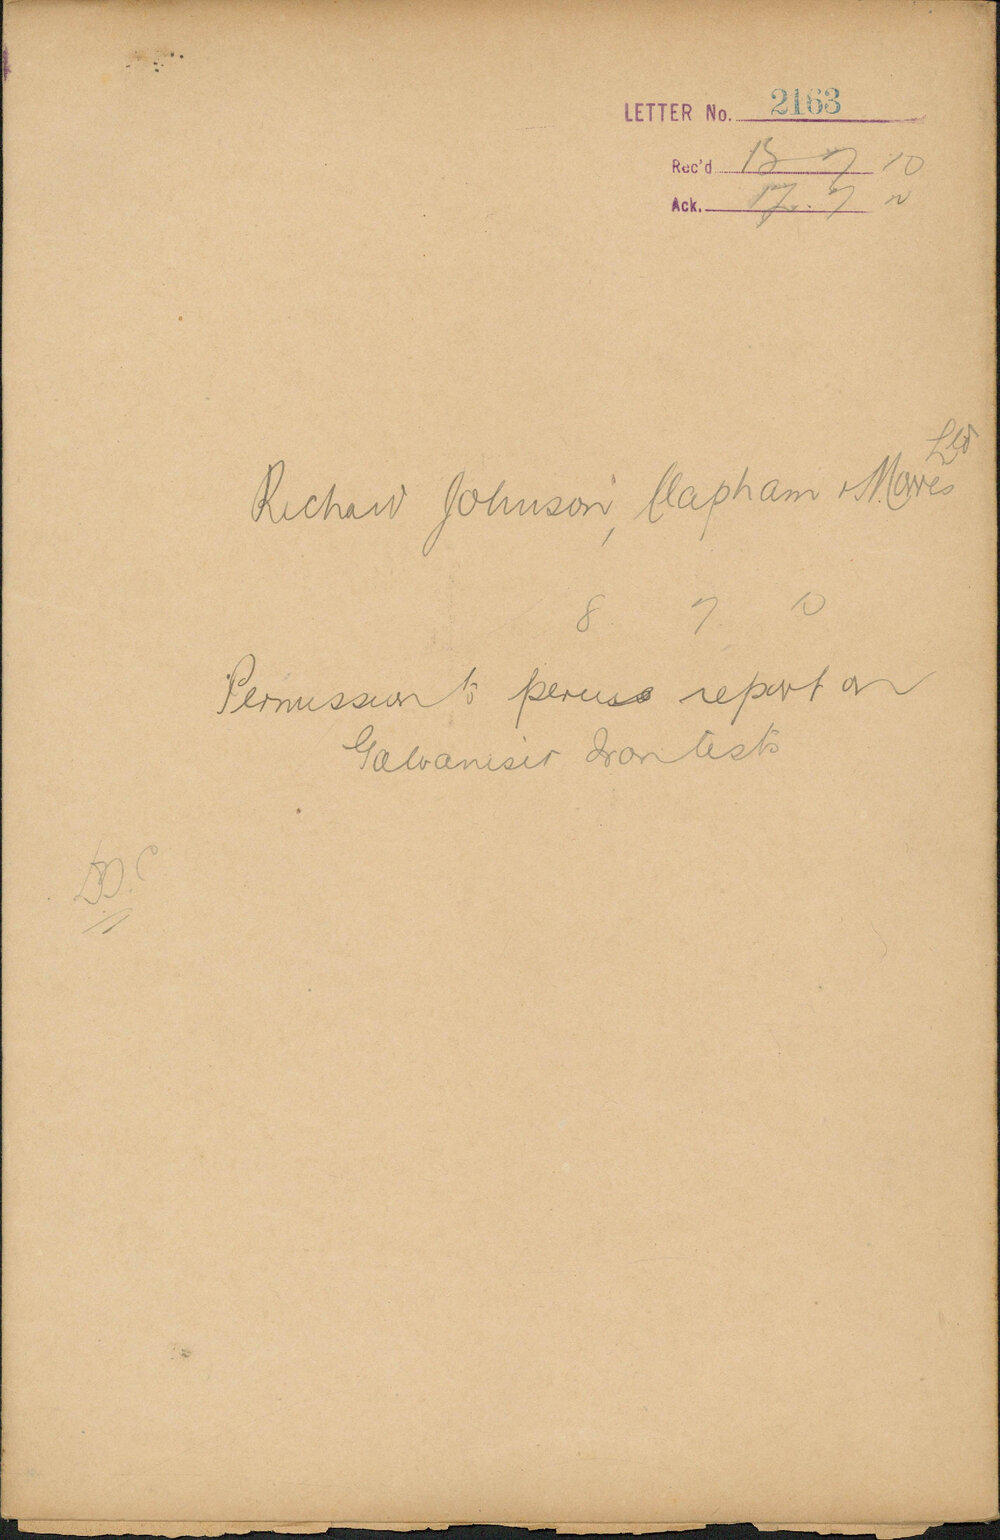 LETTER No. 2163
Rec'd 13 7 10
Ack. 17. 7
Richard Johnson, Clapham & Morris Ltd
8 7 10
Permission to peruse report on
Galvanised Iron tests